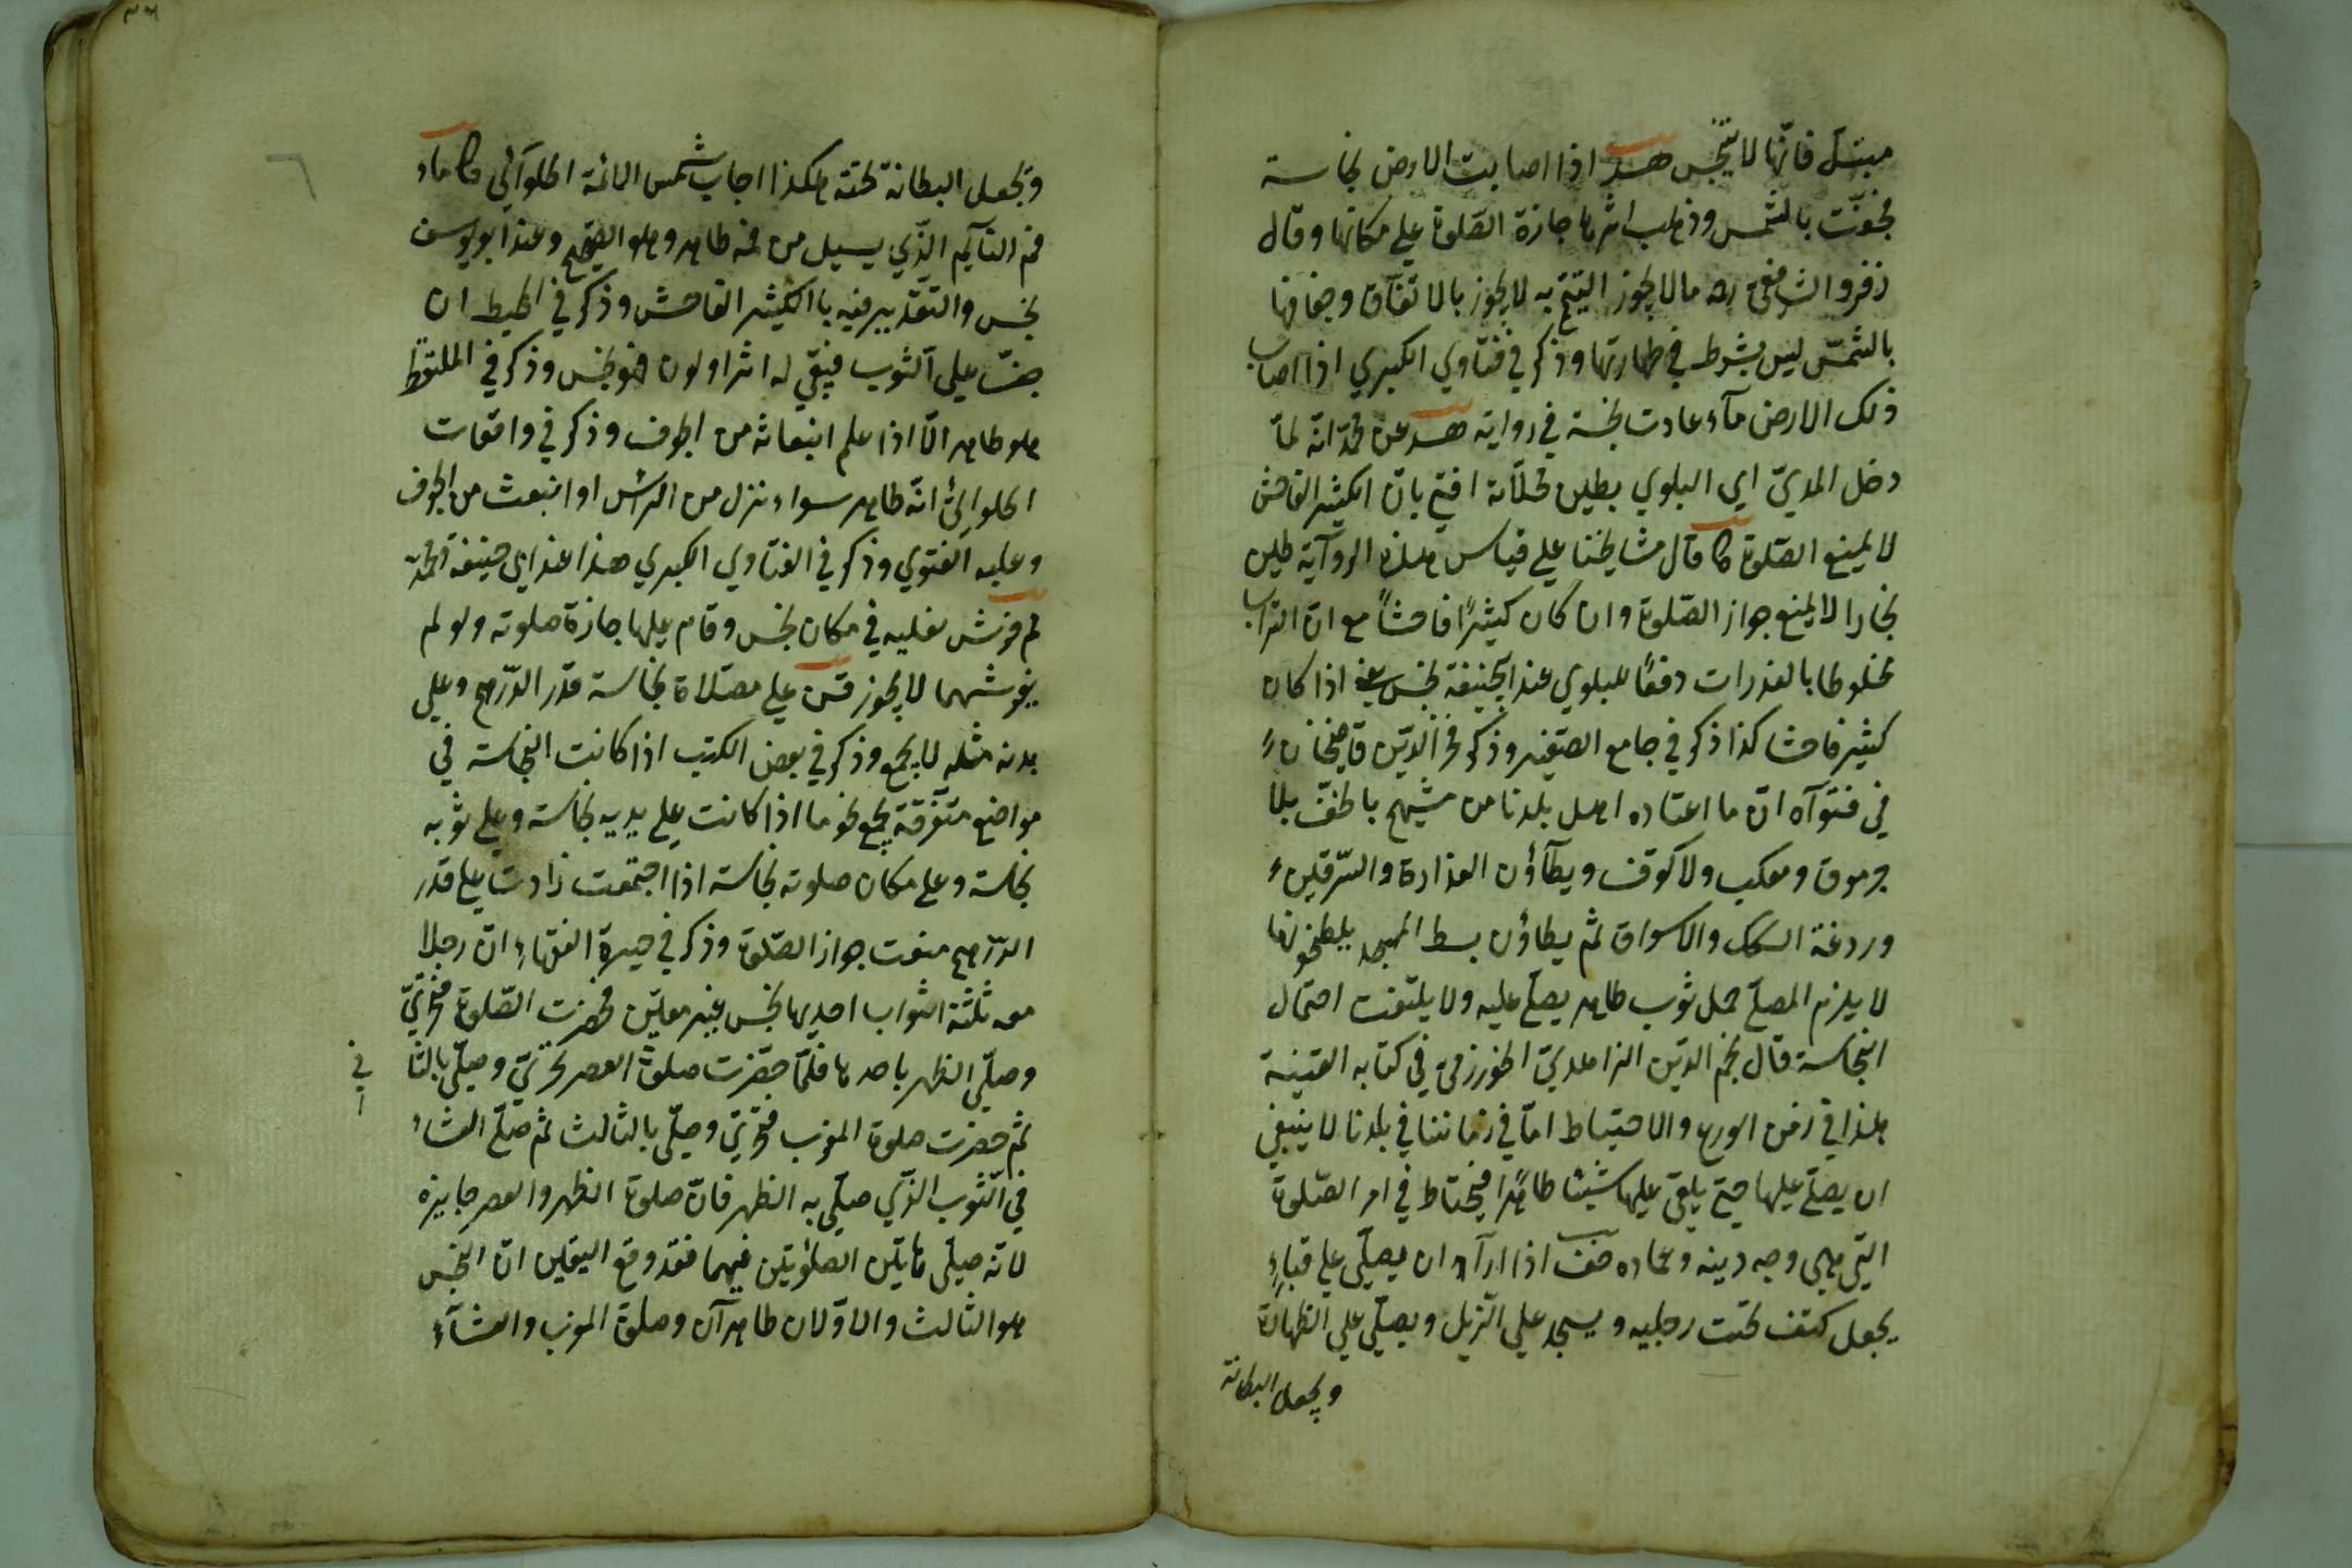 مبتل فانّها لا يتنجّس هد اذا اصابت الارض نجاسة
فجفّت بالشّمس وذهب اثرها جازة الصّلوة علي مكانها وقال
زفر والشافعي ره ما لا يجوز التيمّم به لا يجوز بالاتفاق وجفافها
بالشمس ليس بشرط في طهارتها وذكر في فتاوي الكبري اذا اصاب
ذلك الارض مآء عادت نجسة في رواية هد عن محمّد انّه لمّا
دخل الريّ اي البلوي بطين محلّاته افتي بانّ الكثير الفاحش
لا يمنع الصّلوة كا قال مشايخنا علي قياس هذه الروآية طين
بخارا لا يمنع جواز الصّلوة وان كان كثيرًا فاحشاً مع انّ التراب
مخلوطا بالعذرات دفعًا للبلوي عند ابيحنيفة نجس يعني اذا كان
كثير فاحشا كذا ذكر في جامع الصّغير وذكر فخر الدّين قاضيخان
في فتوآه انّ ما اعتاده اهل بلدنا من مشيهم بالخفّ بلا
جرموق ومكعب ولا كوف ويطآؤن العذارة والسّرقين
وردغة السكك والاسواق ثم يطاؤن بسط المسجد يلطخونها
لا يلزم المصلّي حمل ثوب طاهر يصلّي عليه ولا يلتفت احتمال
النجاسة قال نجم الدّين الزاهديّ الخورزمي في كتابه القنية
هذا في زمن الورع والاحتياط امّا في زماننا في بلدنا لا ينبغي
ان يصلّي عليها حتي يلقي عليها شيئا طاهرًا فيحتاط في امر الصّلوة
التي هي وجه دينه وعماده صف اذا ارآد ان يصلّي علي قباءٍ
يجعل كتف تحت رجليه ويسجد علي الذيل ويصلّي علي الظهارة
ويجعل البطانة
وتجعل البطانة تحته هكذا اجاب شمس الائمة الحلوآئي كا ماء
فم النآيم الّذي يسيل من فمه طاهر وهو الصحيح وعند ابو يوسف
نجس والتقدير فيه باالكثير الفاحش وذكر في المحيط ان
جفّ علي الثوب فبقي له اثر او لون فهو نجس وذكر في الملتقط
هو طاهر الّا اذا علم انبعاثه من الجوف وذكر في واقعات
الحلوائي انّه طاهر سواء نزل من الرأس او انبعث من الجوف
وعليه الفتوي وذكر في الفتاوي الكبري هذا عند ابي حنيفة ومحمّد
لم فرش نعليه في مكان نجس وقام عليها جازة صلوته ولو لم
يفرشهما لا يجوز قن علي مصلّاه نجاسة قدر الدّرهم وعلي
بدنه مثله لا يجمع وذكر في بعض الكتب اذا كانت النجاسة في
مواضع متفرقة يجمع نحو ما اذا كانت علي يديه نجاسة وعلي ثوبه
نجاسة وعلي مكان صلوته نجاسة اذا اجتمعت زادت علي قدر
الدّرهم منعت جواز الصّلوة وذكر في حيرة الفقهاء انّ رجلا
معه ثلثة اثواب احديها نجس بغير معيّن فحضرت الصّلوة فتحرّيّ
وصلّي الظهر باحدها فلمّا حضرت صلوة العصر تحرّيّ وصلّي بالثا
في
ثم حضرت صلوة المغرب فتحرّيّ وصلّي بالثالث ثم صلّي العشاء
في الثوب الّذي صلّي به الظهر فانّ صلوة الظهر والعصر جايزه
لانّه صلّي هاتين الصلوتين فيهما فقد وقع اليقين انّ النجس
هو الثالث والاوّلان طاهرآن وصلوة المغرب والعشآء